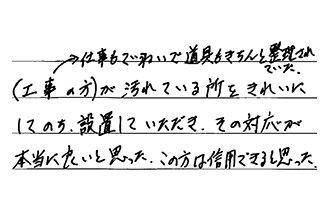 →仕事もていねいで道具もきちんと整理され
ていた。
(工事の方)が汚れている所をきれいに
してのち、設置していただき、その対応が
本当に良いと思った。この方は信用できると思った。